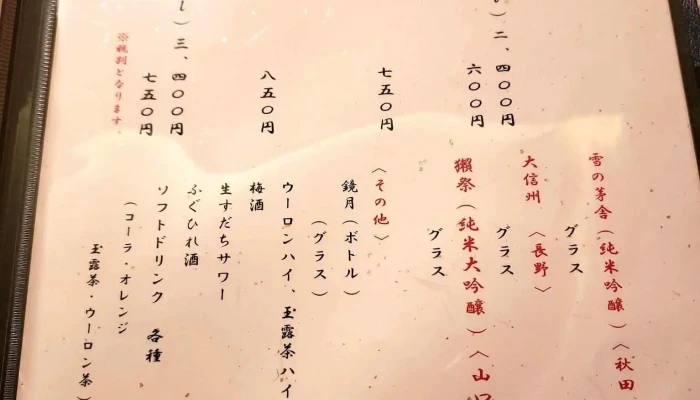 二、四〇〇円
六〇〇円
七五〇円
八五〇円
し）三、四〇〇円
七五〇円
※税別となります。
雪の茅舎（純米吟醸）〈秋田
グラス
大信州〈長野〉
グラス
獺祭（純米大吟醸）〈山口
グラス
〈その他〉
鏡月（ボトル）
（グラス）
ウーロンハイ、玉露茶ハイ
梅酒
生すだちサワー
ふぐひれ酒
ソフトドリンク 各種
（コーラ・オレンジ
玉露茶・ウーロン茶）